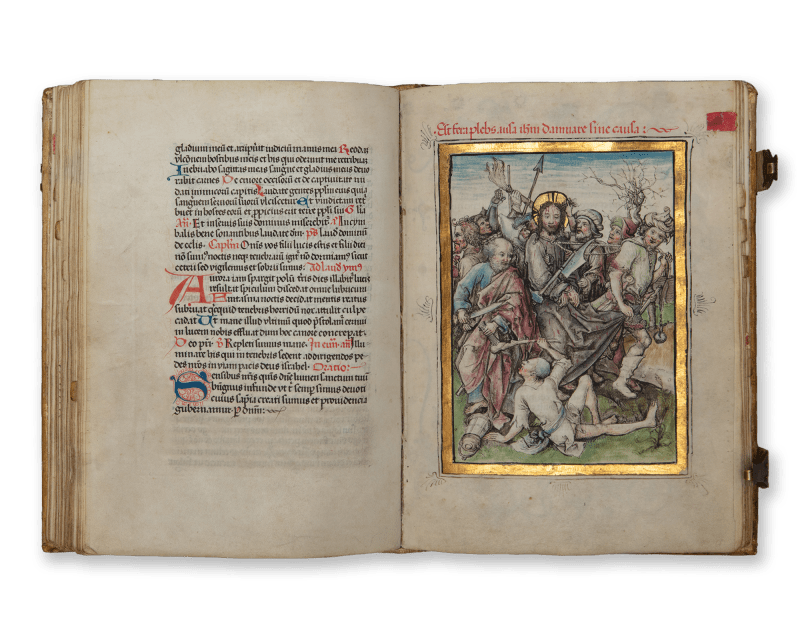 gladium meū et arripu'it iudiciū manus mea Reddā
vlcōnem hostibus meis et his qui oderunt me retribuā
Inebriabo sagitas meas sangne et gladius meus devo
rabit carnes De cruore occisorū et de captivitate nu
dati inimicorū capitis Laudate gentes pplm eius quia
sangnem servorū suorū vlciscetur Et vindictam
in hostes eorū et ppicius erit terre ppli sui Glia
Añ Et in servis suis dominus miserebit' In cym
balis bene sonantibus laudate dm̄ ps Laud dominū
de celis Capl'm Om̄s vos filii lucis estis et filii diei
nō sum⁹ noctis neq; tenebrarū igit' nō dormiam⁹ sicut
ceteri sed vigilemus et sobrii simus Ad laud ymn⁹
Aurora iam spargit polū dies illabit' lucis
resultat spiculum discedat omne lubricum
Fantasma noctis decidat mentis reatus
subruat quicquid tenebris horridū nox attulit culpe
cadat Ut mane illud vltimū quod cernui
in lucem nobis effluat dum hoc canore concrepat
Deo pri ꝟ Repleti sumus mane In añ Illu
minare his qui in tenebris sedent ad dirigendos pe
des nrōs in viam pacis deus israhel Oratio:
Sensibus nr̄is qs dne lumen sanctum tuū
benignus infunde vt t' semp simus devoti
cuius sapīa creati sumus et providencia
gubernamur P dnm:
Est fera plebs ausa ihm damnare sine causa: